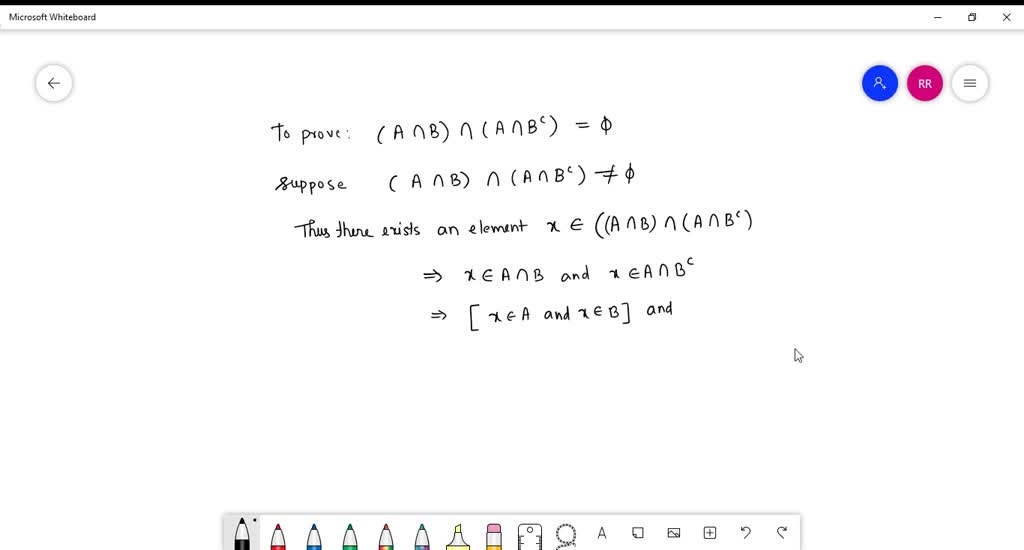 Microsoft Whiteboard
RR
To prove: (A ∩ B) ∩ (A ∩ Bᶜ) = ϕ
suppose (A ∩ B) ∩ (A ∩ Bᶜ) ≠ ϕ
Thus there exists an element x ∈ ((A ∩ B) ∩ (A ∩ Bᶜ)
⇒ x ∈ A ∩ B and x ∈ A ∩ Bᶜ
⇒ [x ∈ A and x ∈ B] and
A